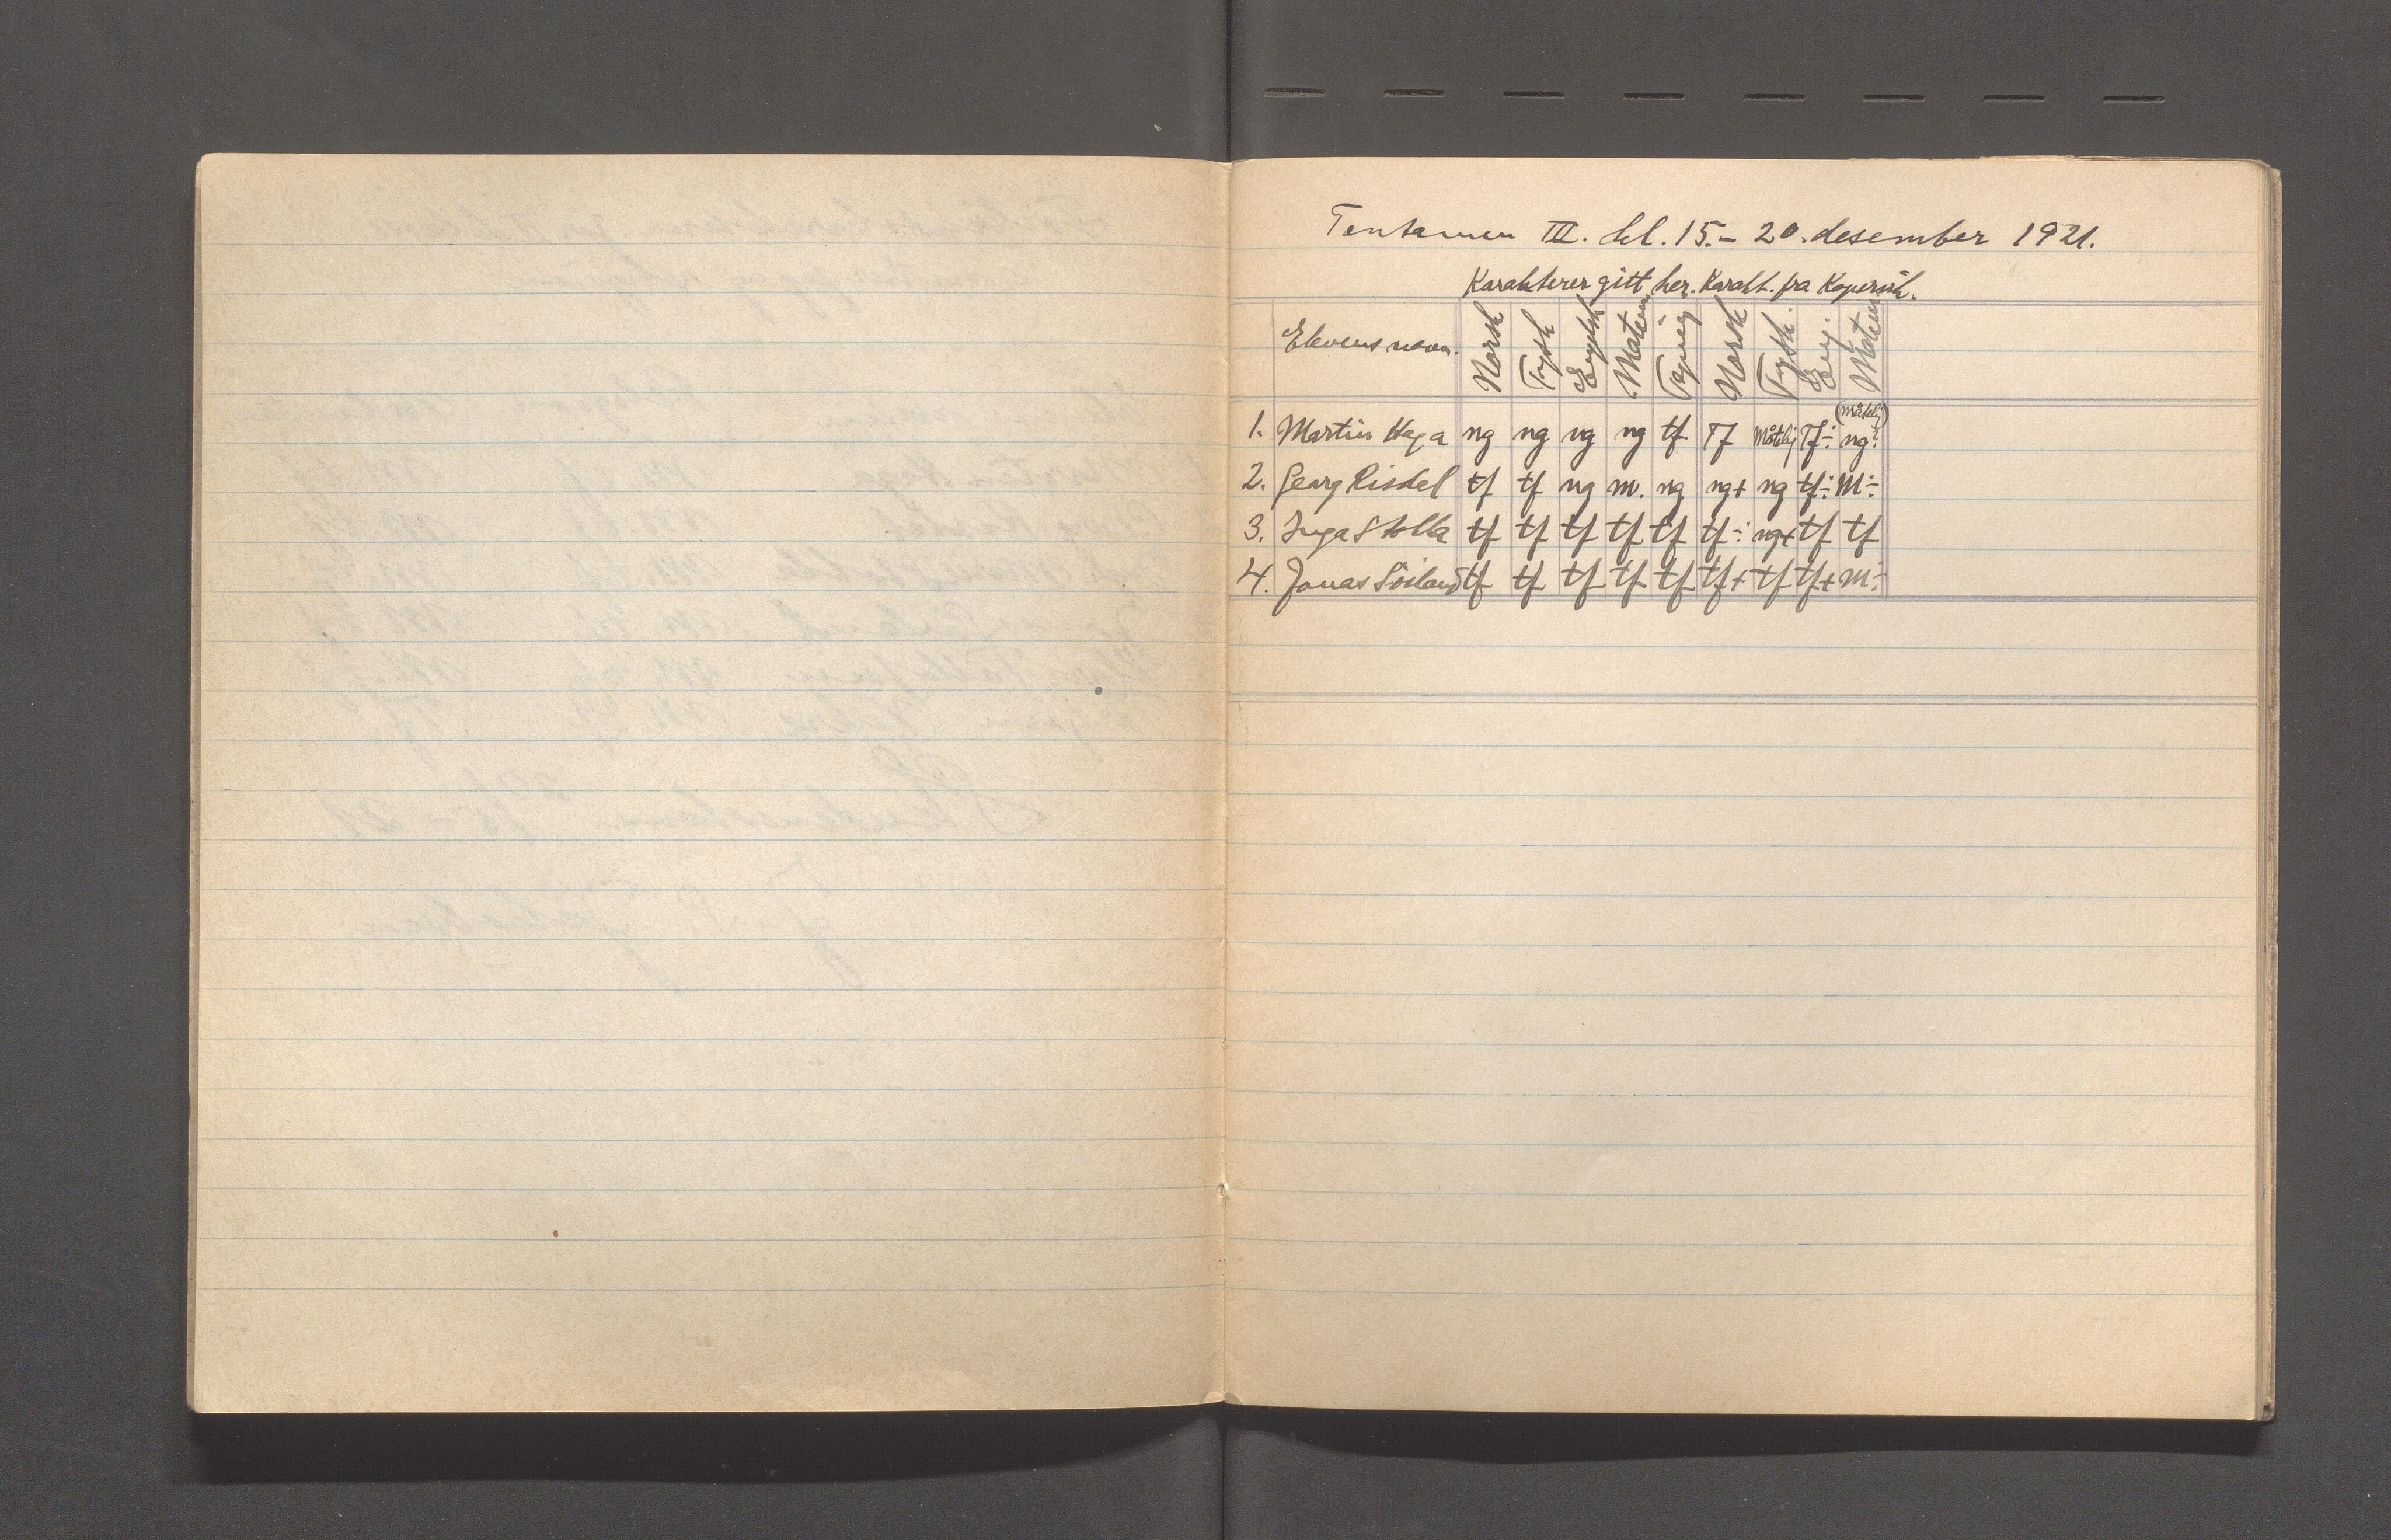 Tentamen III. kl. 15.- 20. desember 1921.
Karakterer gitt her. Karakt. fra Kopervik.
Elevens navn. Norsk Tysk Engelsk Matem. Tegning Norsk Tysk. Eng. Matem
(måtelig)
1. Martin Haga ng ng ng ng tf. Tf Måtelig Tf÷ ng÷
2. Georg Risdel tf tf ng m. ng ng+ ng tf÷ M÷
3. Inga Stolla tf tf tf tf tf tf÷ ng+ tf tf
4. Jonas Söiland tf tf tf tf tf tf+ tf tf+ M÷